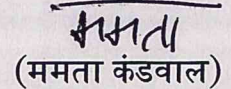 ममता
(ममता कंडवाल)